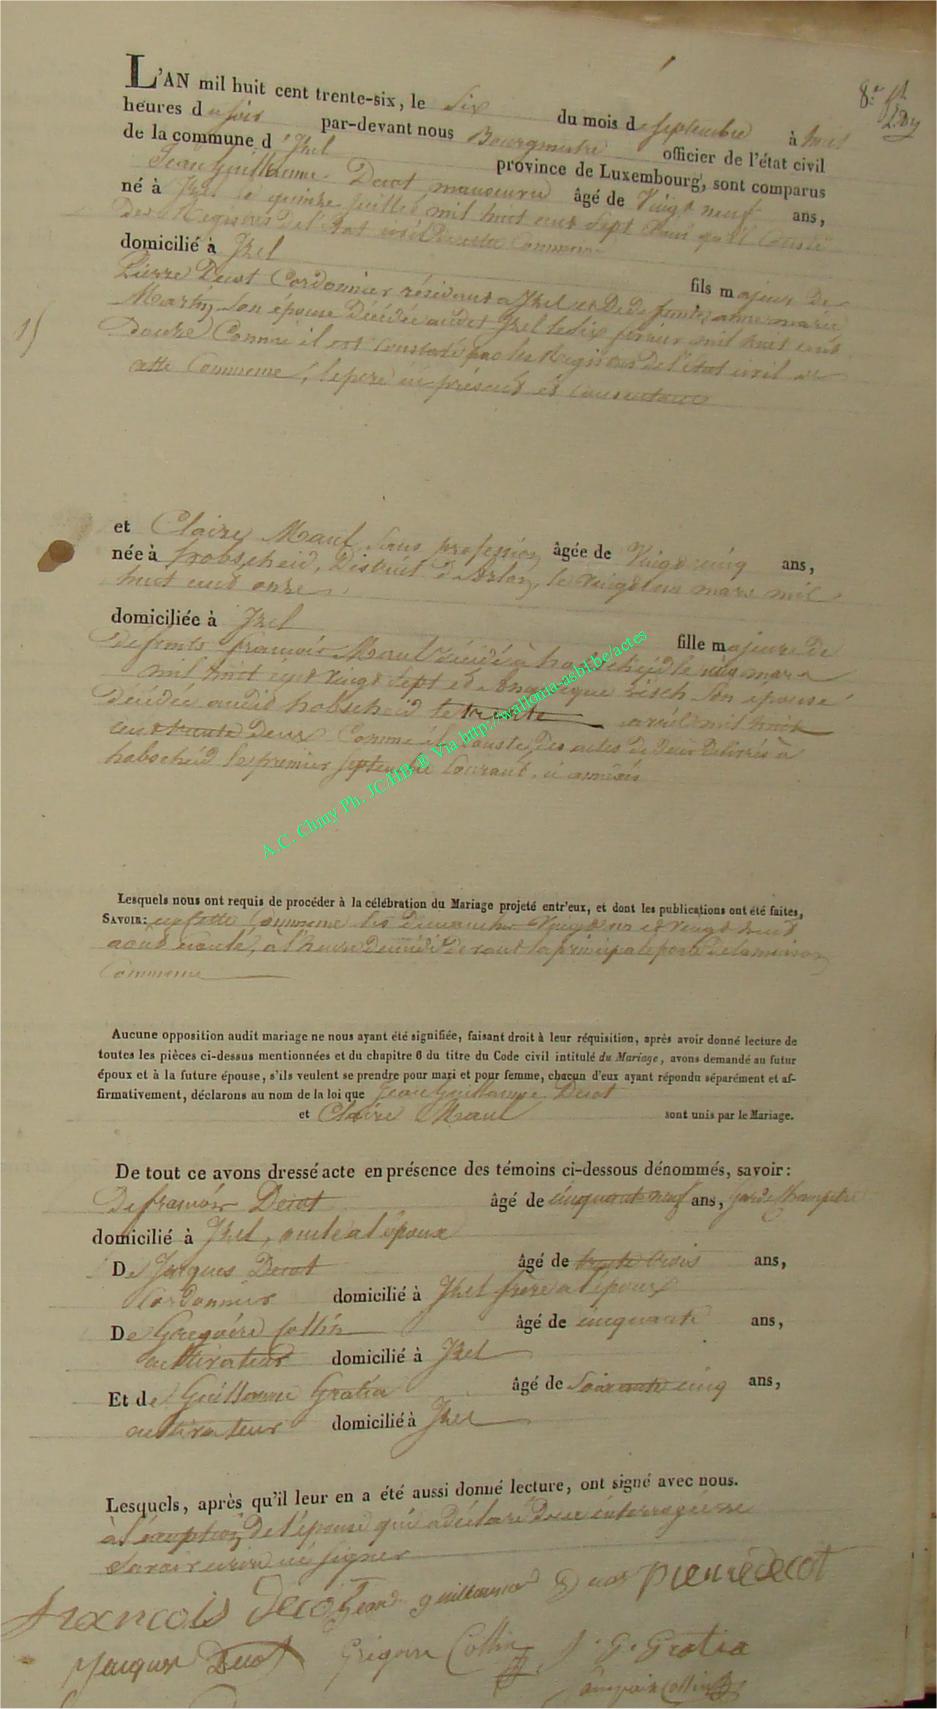 8.e
L'AN mil huit cent trente-six, le Six du mois de septembre à huit
heures du soir par-devant nous Bourgmestre officier de l'état civil
de la commune d'Izel province de Luxembourg, sont comparus
Jean Guillaume Decot manoeuvre âgé de Vingt neuf ans,
né à Izel le quinze juillet mil huit cent sept ainsi qu'il conste
des Registres de l'état civil de cette Commune
domicilié à Izel fils majeur de
Pierre Decot Cordonnier résidant à Izel et De defunte anne marie
Martin, Son épouse Décédée audit Izel le Six février mil huit cent
Douze Comme il est constaté par les Registres de l'état civil de
cette Commune, le pere ici présent et consentant
15
et Claire Maul Sans profession, âgée de Vingt cinq ans,
née à hobscheid, District d'Arlon, le vingt un mars mil
huit cent onze
domiciliée à Izel fille majeure de
défunts françois Maul décédé à hobscheid le cinq mars
mil huit cent vingt sept et risch Son épouse
décédée audit hobscheid le trente avril mil huit
cent trente Deux Comme il conste des actes de Décès Délivrés à
hobscheid le premier septembre Courant, ci annexés
A.C. Chiny Ph. JC/HB ® Via http://wallonia-asbl.be/actes
Lesquels nous ont requis de procéder à la célébration du Mariage projeté entr'eux, et dont les publications ont été faites,
SAVOIR: en Cette Commune les Dimanches Vingt un et vingt huit
août écoulé, à l'heure de midi Devant la principale porte De la maison
Commune
Aucune opposition audit mariage ne nous ayant été signifiée, faisant droit à leur réquisition, après avoir donné lecture de
toutes les pièces ci-dessus mentionnées et du chapitre 6 du titre du Code civil intitulé du Mariage, avons demandé au futur
époux et à la future épouse, s'ils veulent se prendre pour mari et pour femme, chacun d'eux ayant répondu séparément et af-
firmativement, déclarons au nom de la loi que Jean Guillaume Decot
et Claire Maul sont unis par le Mariage.
De tout ce avons dressé acte en présence des témoins ci-dessous dénommés, savoir:
De françois Decot âgé de cinquante neuf ans, garde Champêtre
domicilié à Izel, oncle à l'époux
De Jacques Decot âgé de trente trois ans,
Cordonnier domicilié à Izel frère à l'époux
De Grégoire Collin âgé de cinquante ans,
cultivateur domicilié à Izel
Et de Guillaume Gratia âgé de Soixante cinq ans,
cultivateur domicilié à Izel
Lesquels, après qu'il leur en a été aussi donné lecture, ont signé avec nous.
à l'exception De l'épouse qui a déclaré De ce interrogée ne
Savoir écrire ni signer
francois decot Jean guillaume Decot pierre decot
Jacques Decot Grégoire Collin J. G. Gratia
françois Collin